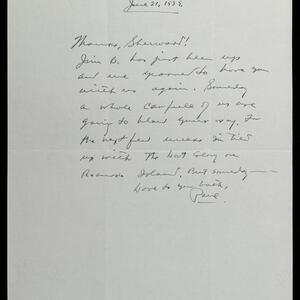 June 21, 1939.
Thanks, Sherwood!
Jim B. has just been up
and we yearned to have you
with us again. Someday
a whole carfull of us are
going to head your way. For
the next few weeks I'm tied
up with The Lost Colony on
Roanoke Island. But someday —
Love to you both,
Paul